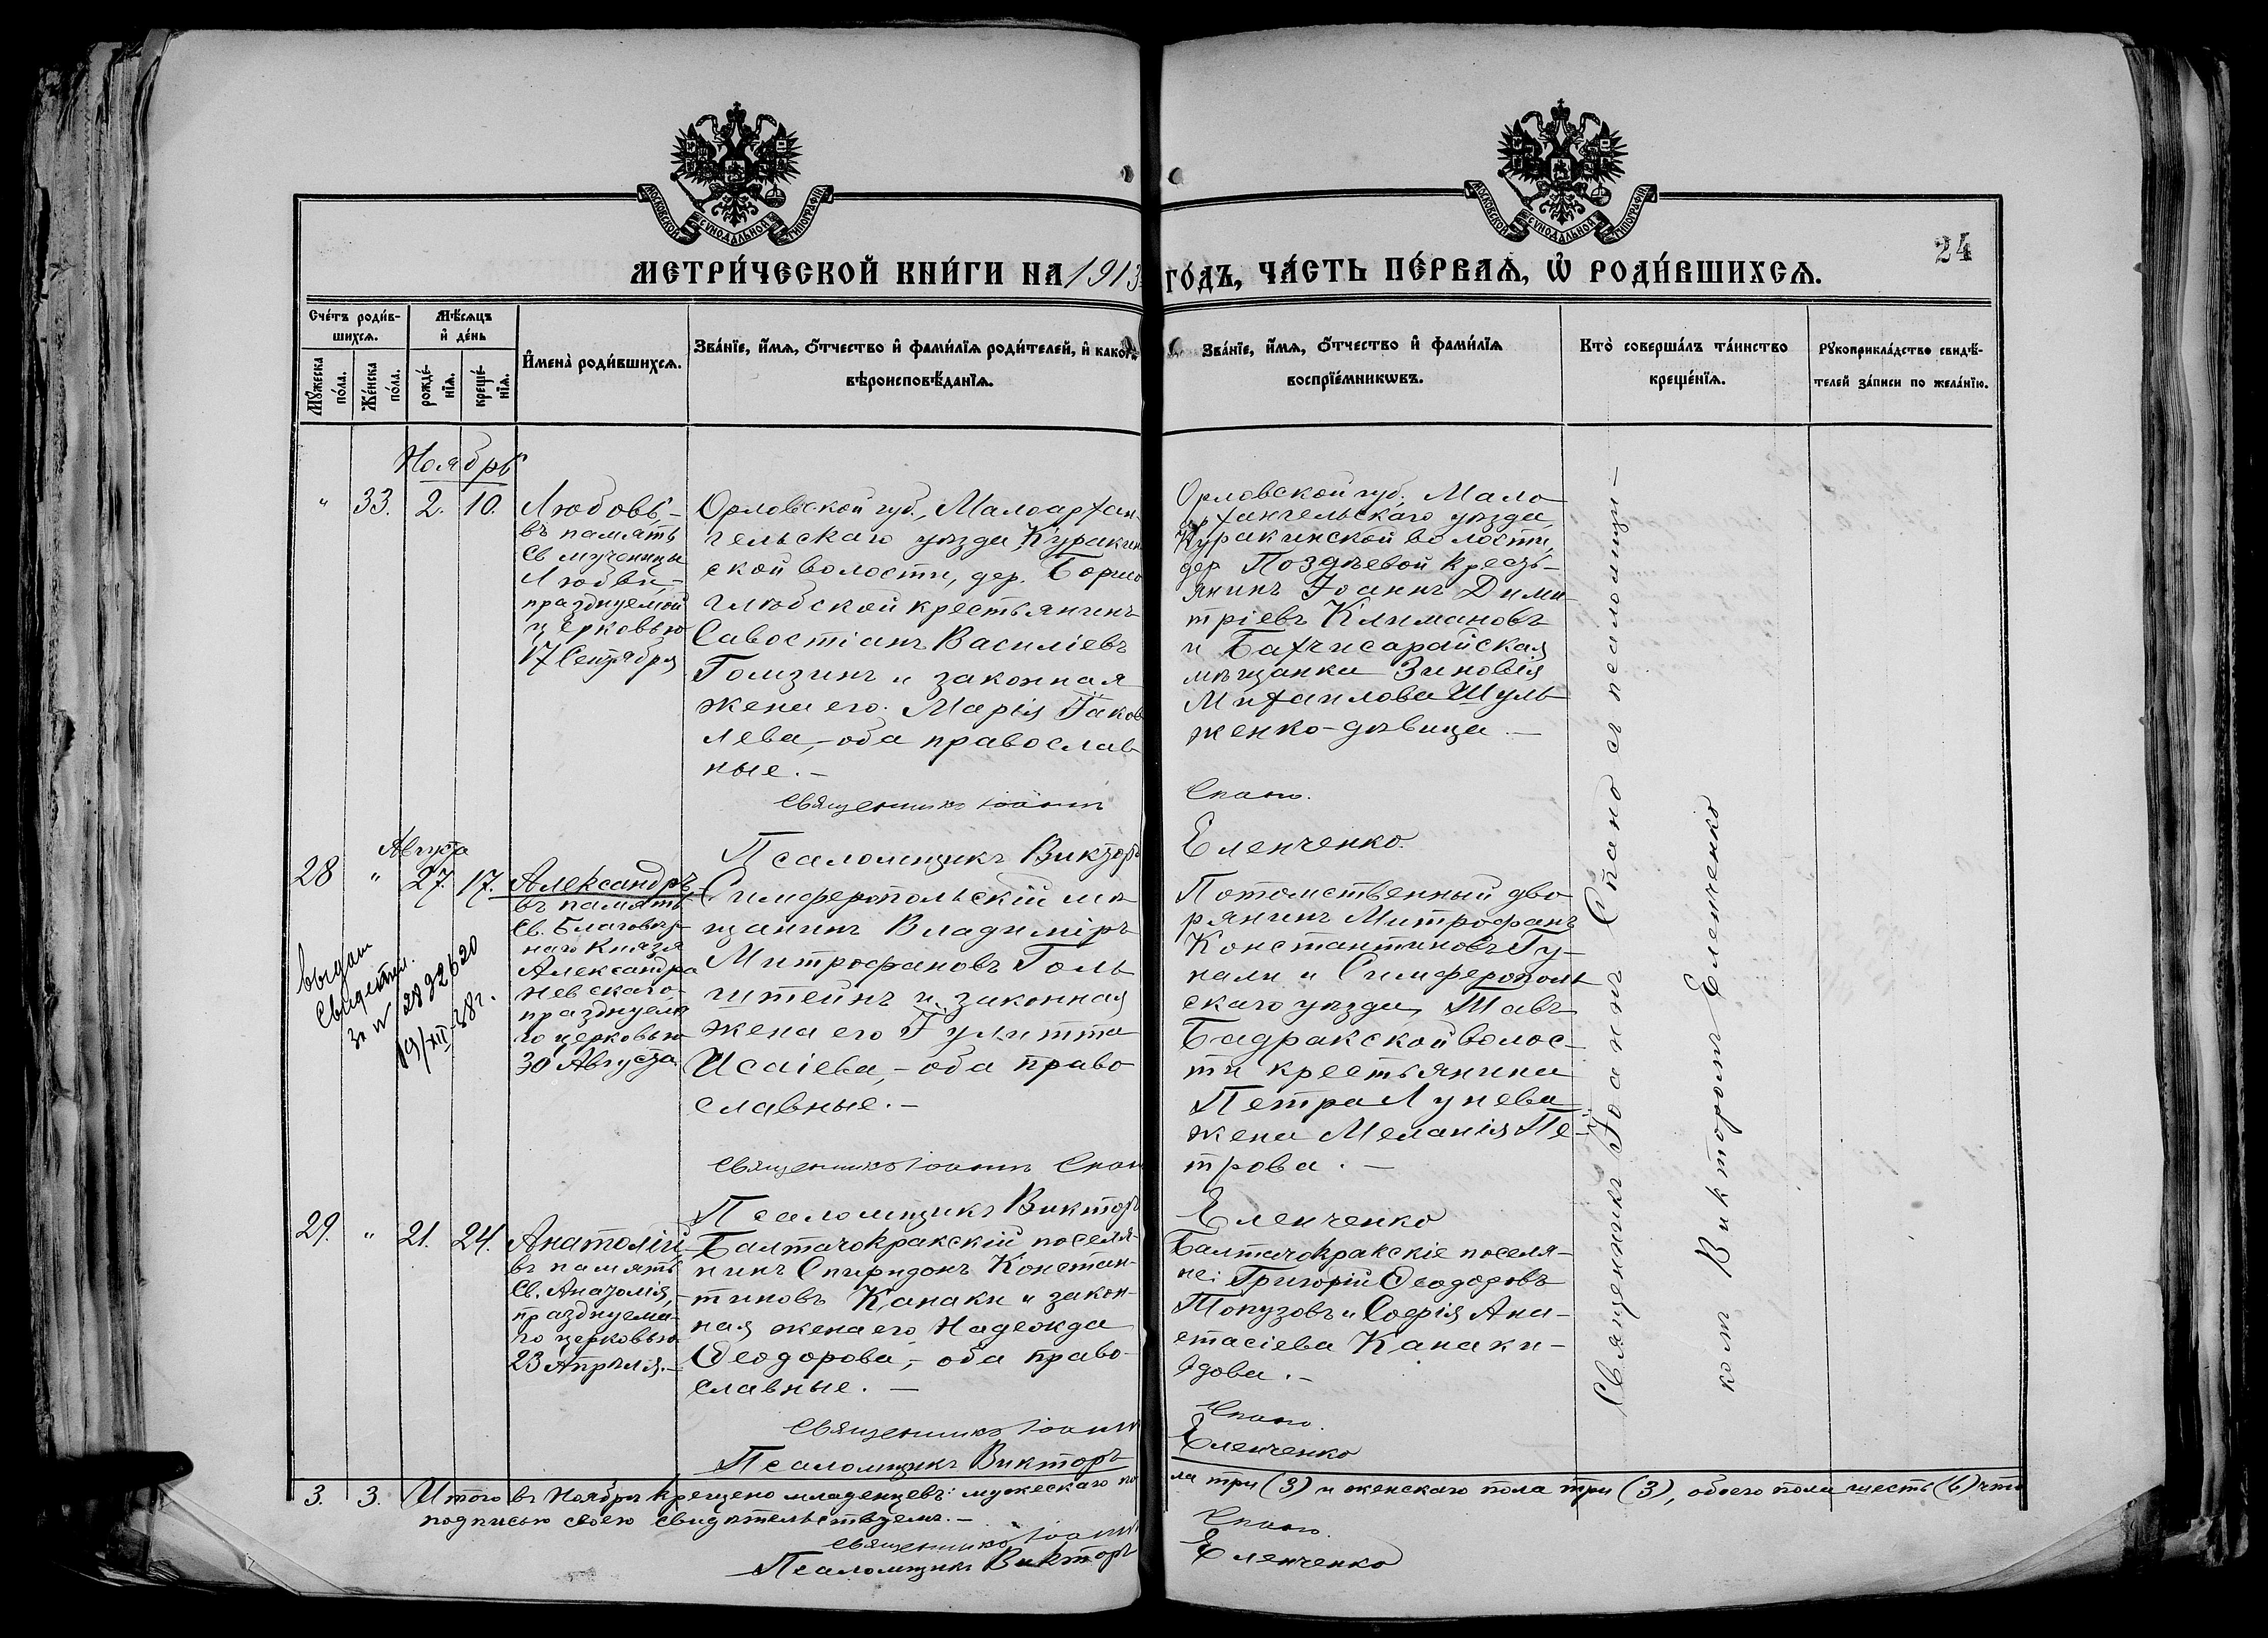 МОСКОВСКОЙ СѴНОДАЛЬНОЙ ТИПОГРАФІИ
МОСКОВСКОЙ СѴНОДАЛЬНОЙ ТИПОГРАФІИ
24
МЕТРИ́ЧЕСКОЙ КНИ́ГИ НА 1913 ГО́ДЪ, ЧА́СТЬ ПЕ́РВАѦ, Ѡ РОДИ́ВШИХСѦ.
Сче́тъ роди́в-
шихсѧ.
Мꙋ́жеска
по́ла.
Же́нска
по́ла.
Мѣ́сѧцъ
и҆ де́нь
рожде́-
нїѧ.
креще́-
нїѧ.
И҆мена̀ роди́вшихсѧ.
Зва́нїе, и҆́мѧ, ѻ҆́тчество и҆ фами́лїѧ роди́телей, и҆ како́гѡ
вѣроисповѣ́данїѧ.
Зва́нїе, и҆́мѧ, ѻ҆́тчество и҆ фами́лїѧ
воспрїе́мникѡвъ.
Кто̀ соверша́лъ та́инство
креще́нїѧ.
Рꙋкоприкла́дство свидѣ́-
телей за́писи по жела́нїю.
Ноябрь
" 33. 2. 10.
Любовь,-
въ память
Св мученицы
Любви,-
празднуемой
церковью
17 Сентября
Орловской губ., Малоархан-
гельскаго уѣзда, Куракин
ской волости, дер. Борисо
глѣбской крестьянинъ
Савостіанъ Василіевъ
Гомзинъ и законная
жена его Марія Іаков
лева,-оба православ
ные.-
Священникъ Іоаннъ
Псаломщикъ Викторъ
Орловской губ. Мало
архангельскаго уѣзда,
Куракинской волости,
дер Поздѣевой кресть-
янинъ Іоаннъ Дими-
тріевъ Климановъ
и Бахчисарайская
мѣщанка Зиновія
Михаилова Шуль
женко-дѣвица.-
Спано.
Еленченко.
Августа
28 " 27. 17.
Александръ,
въ память
Св. Благовѣр-
наго Князя
Александра
Невскаго,
празднуема
го церковью
30 Августа.
Выдан
Свидетел.
за №
19/XII-38г.
Симферопольскій мѣ-
щанинъ Владиміръ
Митрофановъ Голь
штейнъ и законная
жена его Іулитта
Исаіева,-оба право
славные.-
Священникъ Іоаннъ Спан
Псаломщикъ Викторъ
Потомственный дво
рянинъ Митрофанъ
Константиновъ Гу-
нали и Симферополь
скаго уѣзда, Шавъ
Бадракской волос-
ти крестьянина
Петра Лунева
жена Меланія Пе-
трова.-
Еленченко
29. " 21. 24.
Анатолій,
въ память
Св. Анатолія,-
празднуема-
го церковью
23 Апрѣля.-
Балтачокракскій поселя-
нинъ Спиридонъ Констан-
тиновъ Канаки и закон-
ная жена его Надежда
Ѳеодорова,-оба право-
славные.-
Священникъ Іоаннъ
Псаломщикъ Викторъ
Балтачокракскіе поселя-
не: Григорій Ѳеодоровъ
Топузовъ и Софія Ана-
стасіева Канаки-
вдова.-
Спано.
Еленченко
Священникъ Іоаннъ Спано съ псаломщи-
комъ Викторомъ Еленченко
3. 3. Итого въ Ноябрѣ крещено младенцевъ: мужескаго по
ла три (3) и женскаго пола три (3), обоего пола шесть (6) что
подписью своею свидѣтельствуемъ.-
Священникъ Іоаннъ Спано.
Псаломщикъ Викторъ Еленченко